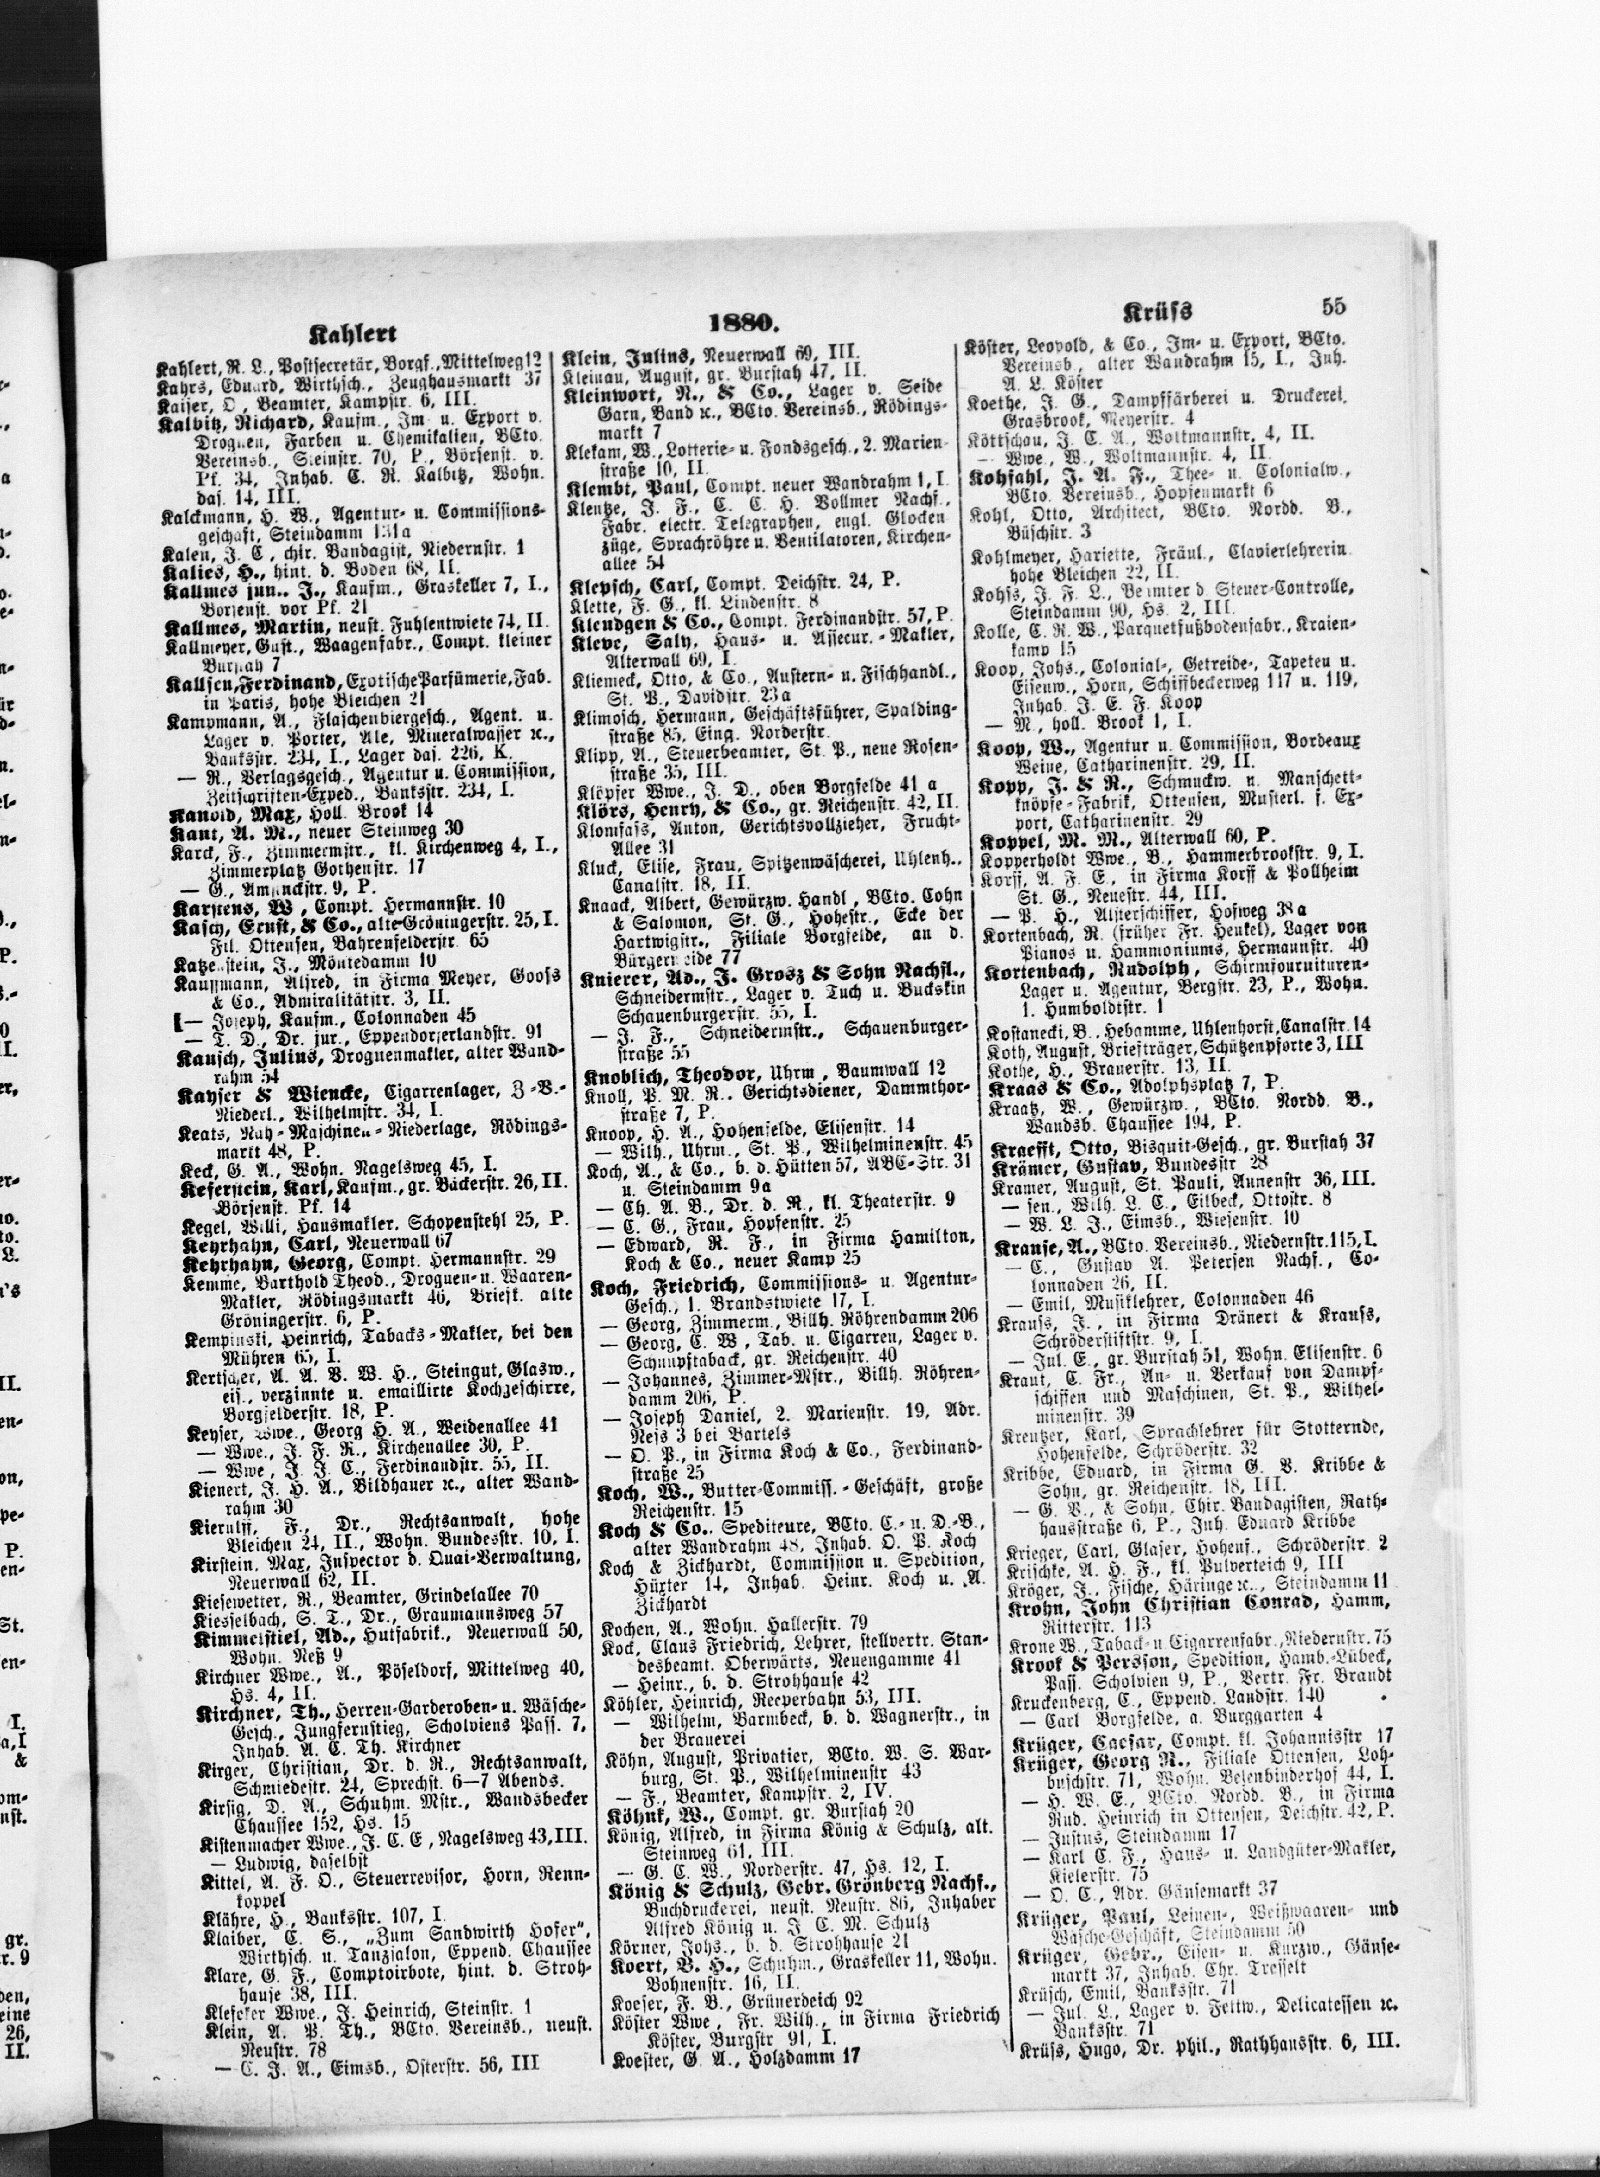 Kahlert
1880.
Krüss
55
Kahlert, R. L., Postsecretär, Borgf., Mittelweg 12
Kahrs, Eduard, Wirthsch., Zeughausmarkt 37
Kaiser, O, Beamter, Kampstr. 6, III.
Kalbitz, Richard, Kaufm., Im- u. Export v.
Droguen, Farben u. Chemikalien, BCto.
Vereinsb., Steinstr. 70, P., Börsenst. v.
Pf. 34, Inhab. C. R. Kalbitz, Wohn.
das. 14, III.
Kalckmann, H. W., Agentur- u. Commissions-
geschäft, Steindamm 131a
Kalen, J. C, chir. Bandagist, Niedernstr. 1
Kalies, H., hint. d. Boden 68, II.
Kallmes jun., J., Kaufm., Graskeller 7, I.,
Börsenst. vor Pf. 21
Kallmes, Martin, neust. Fuhlentwiete 74, II.
Kallmeyer, Gust., Waagenfabr., Compt. kleiner
Burstah 7
Kallsen, Ferdinand, Exotische Parfümerie, Fab.
in Paris, hohe Bleichen 21
Kampmann, A., Flaschenbiergesch., Agent. u.
Lager v. Porter, Ale, Mineralwasser ꝛc.,
Banksstr. 234, I., Lager das. 226, K.
— R., Verlagsgesch., Agentur u. Commission,
Zeitschriften-Exped., Banksstr. 234, I.
Kanold, Max, Holl. Brook 14
Kant, A. M., neuer Steinweg 30
Karck, F., Zimmermstr., kl. Kirchenweg 4, I.,
Zimmerplatz Gothenstr. 17
— G., Amsinckstr. 9, P.
Karstens, W, Compt. Hermannstr. 10
Kasch, Ernst, & Co., alte Gröningerstr. 25, I.
Ftl. Ottensen, Bahrenfelderstr. 65
Katzenstein, J., Mönkedamm 10
Kauffmann, Alfred, in Firma Meyer, Gooss
& Co., Admiralitätstr. 3, II.
— Joseph, Kaufm., Colonnaden 45
— T. D., Dr. jur., Eppendorferlandstr. 91
Kausch, Julius, Droguenmakler, alter Wand-
rahm 54
Kayser & Wiencke, Cigarrenlager, Z.-V.-
Niederl., Wilhelmstr. 34, I.
Keats, Näh-Maschinen-Niederlage, Rödings-
markt 48, P.
Keck, G. A., Wohn. Nagelsweg 45, I.
Keferstein, Karl, Kaufm., gr. Bäckerstr. 26, II.
Börsenst. Pf. 14
Kegel, Willi, Hausmakler, Schopenstehl 25, P.
Kehrhahn, Carl, Neuerwall 67
Kehrhahn, Georg, Compt. Hermannstr. 29
Kemme, Barthold Theod., Droguen- u. Waaren-
Makler, Rödingsmarkt 46, Briefk. alte
Gröningerstr. 6, P.
Kempinski, Heinrich, Tabacks-Makler, bei den
Mühren 65, I.
Kertscher, A. A. B. W. H., Steingut, Glasw.,
eis., verzinnte u. emaillirte Kochgeschirre,
Borgfelderstr. 18, P.
Keyser, Wwe., Georg H. A., Weidenallee 41
— Wwe., J. F. R., Kirchenallee 30, P.
— Wwe, J. J. C., Ferdinandstr. 55, II.
Kienert, J. H. A., Bildhauer ꝛc., alter Wand-
rahm 30
Kierulff, F., Dr., Rechtsanwalt, hohe
Bleichen 24, II., Wohn. Bundesstr. 10, I.
Kirstein, Max, Inspector d. Quai-Verwaltung,
Neuerwall 62, II.
Kiesewetter, R., Beamter, Grindelallee 70
Kiesselbach, S. T., Dr., Graumannsweg 57
Kimmelstiel, Ad., Hutfabrik., Neuerwall 50,
Wohn. Neß 9
Kirchner Wwe., A., Pöseldorf, Mittelweg 40,
Hs. 4, II.
Kirchner, Th., Herren-Garderoben- u. Wäsche-
Gesch., Jungfernstieg, Scholviens Pass. 7,
Inhab. A. C. Th. Kirchner
Kirger, Christian, Dr. d. R., Rechtsanwalt,
Schmiedestr. 24, Sprechst. 6—7 Abends.
Kirsig, D. A., Schuhm. Mstr., Wandsbecker
Chaussee 152, Hs. 15
Kistenmacher Wwe., J. C. E, Nagelsweg 43, III.
— Ludwig, daselbst
Kittel, A. F. O., Steuerrevisor, Horn, Renn-
koppel
Klähre, H., Banksstr. 107, I.
Klaiber, C. S., „Zum Sandwirth Hofer“,
Wirthsch. u. Tanzsalon, Eppend. Chaussee
Klare, G. F., Comptoirbote, hint. d. Stroh-
hause 38, III.
Klefeker Wwe., J. Heinrich, Steinstr. 1
Klein, A. P. Th., BCto. Vereinsb., neust.
Neustr. 78
— C. J. A., Eimsb., Osterstr. 56, III
Klein, Julius, Neuerwall 69, III.
Kleinau, August, gr. Burstah 47, II.
Kleinwort, R., & Co., Lager v. Seide
Garn, Band ꝛc., BCto. Vereinsb., Rödings-
markt 7
Klekam, W., Lotterie- u. Fondsgesch., 2. Marien-
straße 10, II.
Klembt, Paul, Compt. neuer Wandrahm 1, I.
Klentze, J. F., C. C. H. Vollmer Nachf.,
Fabr. electr. Telegraphen, engl. Glocken
züge, Sprachröhre u. Ventilatoren, Kirchen-
allee 54
Klepsch, Carl, Compt. Deichstr. 24, P.
Klette, F. G., kl. Lindenstr. 8
Kleudgen & Co., Compt. Ferdinandstr. 57, P.
Kleve, Saly, Haus- u. Assecur.-Makler,
Alterwall 69, I.
Kliemeck, Otto, & Co., Austern- u. Fischhandl.,
St. P., Davidstr. 23a
Klimosch, Hermann, Geschäftsführer, Spalding-
straße 85, Eing. Norderstr.
Klipp, A., Steuerbeamter, St. P., neue Rosen-
straße 35, III.
Klöpfer Wwe., J. D., oben Borgfelde 41 a
Klörs, Henry, & Co., gr. Reichenstr. 42, II.
Klomfass, Anton, Gerichtsvollzieher, Frucht-
Allee 31
Kluck, Elise, Frau, Spitzenwäscherei, Uhlenh.,
Canalstr. 18, II.
Knaack, Albert, Gewürzw. Handl, BCto. Cohn
& Salomon, St. G., Hohestr., Ecke der
Hartwigstr., Filiale Borgfelde, an d.
Bürgerweide 77
Knierer, Ad., J. Grosz & Sohn Nachfl.,
Schneidermstr., Lager v. Tuch u. Buckskin
Schauenburgerstr. 55, I.
— J. F., Schneidermstr., Schauenburger-
straße 55
Knoblich, Theodor, Uhrm, Baumwall 12
Knoll, P. M. R., Gerichtsdiener, Dammthor-
straße 7, P.
Knoop, H. A., Hohenfelde, Elisenstr. 14
— Wilh., Uhrm., St. P., Wilhelminenstr. 45
Koch, A., & Co., b. d. Hütten 57, ABC-Str. 31
u. Steindamm 9a
— Ch. A. B., Dr. d. R., kl. Theaterstr. 9
— C. G., Frau, Hopfenstr. 25
— Edward, R. F., in Firma Hamilton,
Koch & Co., neuer Kamp 25
Koch, Friedrich, Commissions- u. Agentur-
Gesch., 1. Brandstwiete 17, I.
— Georg, Zimmerm., Billh. Röhrendamm 206
— Georg, C. W, Tab. u. Cigarren, Lager v.
Schnupftaback, gr. Reichenstr. 40
— Johannes, Zimmer-Mstr., Billh. Röhren-
damm 206, P.
— Joseph Daniel, 2. Marienstr. 19, Adr.
Ness 3 bei Bartels
— O. P., in Firma Koch & Co., Ferdinand-
straße 25
Koch, W., Butter-Commiss.-Geschäft, große
Reichenstr. 15
Koch & Co., Spediteure, BCto. C.- u. D.-B.,
alter Wandrahm 48, Inhab. O. P. Koch
Koch & Zickhardt, Commission u. Spedition,
Hüxter 14, Inhab. Heinr. Koch u. A.
Zickhardt
Kochen, A., Wohn. Hallerstr. 79
Kock, Claus Friedrich, Lehrer, stellvertr. Stan-
desbeamt. Oberwärts, Neuengamme 41
— Heinr., b. d. Strohhause 42
Köhler, Heinrich, Reeperbahn 53, III.
— Wilhelm, Barmbeck, b. d. Wagnerstr., in
der Brauerei
Köhn, August, Privatier, BCto. W. S. War-
burg, St. P., Wilhelminenstr 43
— F., Beamter, Kampstr. 2, IV.
Köhnk, W., Compt. gr. Burstah 20
König, Alfred, in Firma König & Schulz, alt.
Steinweg 61, III.
— G. C. W., Norderstr. 47, Hs. 12, I.
König & Schulz, Gebr. Grönberg Nachf.,
Buchdruckerei, neust. Neustr. 86, Inhaber
Alfred König u. J C. M. Schulz
Körner, Johs., b. d. Strohhause 21
Koert, B. H., Schuhm., Graskeller 11, Wohn.
Bohnenstr. 16, II.
Koeser, F. B., Grünerdeich 92
Köster Wwe, Fr. Wilh., in Firma Friedrich
Köster, Burgstr 91, I.
Koester, G A., Holzdamm 17
Köster, Leopold, & Co., Im- u. Export, BCto.
Vereinsb., alter Wandrahm 15, I., Inh.
A. L. Köster
Koethe, J. G., Dampffärberei u. Druckerei,
Grasbrook, Meyerstr. 4
Köttschau, J. C. A., Woltmannstr. 4, II.
— Wwe., W., Woltmannstr. 4, II.
Kohfahl, J. A. F., Thee- u. Colonialw.,
BCto. Vereinsb., Hopfenmarkt 6
Kohl, Otto, Architect, BCto. Nordd. B.,
Büschstr. 3
Kohlmeyer, Hariette, Fräul., Clavierlehrerin
hohe Bleichen 22, II.
Kohfs, J. F. L., Beamter d. Steuer-Controlle,
Steindamm 90, Hs. 2, III.
Kolle, C. R. W., Parquetfußbodenfabr., Kraien-
kamp 15
Koop, Johs., Colonial-, Getreide-, Tapeten u.
Eisenw., Horn, Schiffbeckerweg 117 u. 119,
Inhab. J. E. F. Koop
— M., holl. Brook 1, I.
Koop, W., Agentur u. Commission, Bordeaux
Weine, Catharinenstr. 29, II.
Kopp, J. & R., Schmuckw. u. Manschett-
knöpfe-Fabrik, Ottensen, Musterl. f. Ex-
port, Catharinenstr. 29
Koppel, M. M., Alterwall 60, P.
Kopperholdt Wwe., B., Hammerbrookstr. 9, I.
Korff, A. F. E., in Firma Korff & Pollheim
St. G., Neuestr. 44, III.
— P. H., Alsterschiffer, Hofweg 38a
Kortenbach, R. (früher Fr. Henkel), Lager von
Pianos u. Hammoniums, Hermannstr. 40
Kortenbach, Rudolph, Schirmfournituren-
Lager u. Agentur, Bergstr. 23, P., Wohn.
1. Humboldtstr. 1
Kostanecki, B., Hebamme, Uhlenhorst, Canalstr. 14
Koth, August, Briefträger, Schützenpforte 3, III
Kothe, H., Brauerstr. 13, II.
Kraas & Co., Adolphsplatz 7, P.
Kraatz, W., Gewürzw., BCto. Nordd. B.,
Wandsb. Chaussee 194, P.
Kraefft, Otto, Bisquit-Gesch., gr. Burstah 37
Krämer, Gustav, Bundesstr 28
Kramer, August, St. Pauli, Annenstr 36, III.
— sen., Wilh. L. C., Eilbeck, Ottostr. 8
— W. L. J., Eimsb., Wiesenstr. 10
Krause, A., BCto. Vereinsb., Niedernstr. 115, I.
— C., Gustav A. Petersen Nachf., Co-
lonnaden 26, II.
— Emil, Musiklehrer, Colonnaden 46
Krauss, J., in Firma Dränert & Krauss,
Schröderstiftstr. 9, I.
— Jul. E., gr. Burstah 51, Wohn. Elisenstr. 6
Kraut, C. Fr., An- u. Verkauf von Dampf-
schiffen und Maschinen, St. P., Wilhel-
minenstr. 39
Kreutzer, Karl, Sprachlehrer für Stotternde,
Hohenfelde, Schröderstr. 32
Kribbe, Eduard, in Firma G. V. Kribbe &
Sohn, gr. Reichenstr. 18, III.
— G. V., & Sohn, Chir. Bandagisten, Rath-
hausstraße 6, P., Inh. Eduard Kribbe
Krieger, Carl, Glaser, Hohenf., Schröderstr. 2
Krischke, A. H. F., kl. Pulverteich 9, III
Kröger, J., Fische, Häringe ꝛc., Steindamm 11
Krohn, John Christian Conrad, Hamm,
Ritterstr. 113
Krone W., Taback- u Cigarrenfabr., Niedernstr. 75
Krook & Persson, Spedition, Hamb.-Lübeck,
Pass. Scholvien 9, P., Vertr. Fr. Brandt
Kruckenberg, C., Eppend. Landstr. 140
— Carl Borgfelde, a. Burggarten 4
Krüger, Caesar, Compt. kl. Johannisstr 17
Krüger, Georg N., Filiale Ottensen, Loh-
buschstr. 71, Wohn. Besenbinderhof 44, I.
— H. W. E., BCto. Nordd. B., in Firma
Rud. Heinrich in Ottensen, Deichstr. 42, P.
— Justus, Steindamm 17
— Karl C. F., Haus- u. Landgüter-Makler,
Kielerstr. 75
— O. C., Adr. Gänsemarkt 37
Krüger, Paul, Leinen-, Weißwaaren- und
Wäsche-Geschäft, Steindamm 50
Krüger, Gebr., Eisen- u. Kurzw., Gänse-
markt 37, Inhab. Chr. Tresselt
Krüsch, Emil, Banksstr. 71
— Jul. L., Lager v. Fettw., Delicatessen ꝛc.
Banksstr. 71
Krüss, Hugo, Dr. phil., Rathhausstr. 6, III.